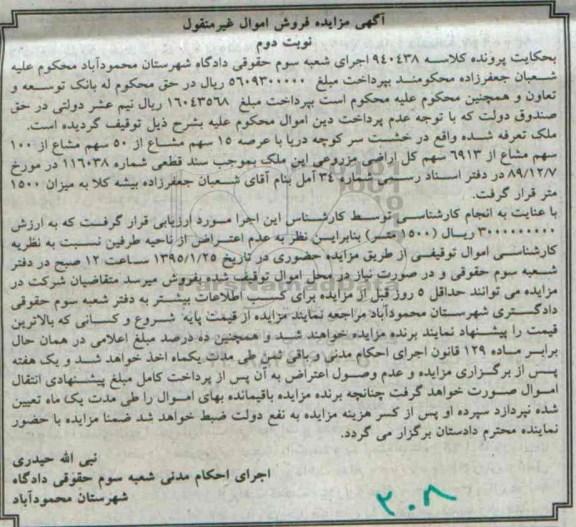 آگهی مزایده فروش اموال غیرمنقول
نوبت دوم
بحکایت پرونده کلاسه ۹۴۰۴۳۸ اجرای شعبه سوم حقوقی دادگاه شهرستان محمودآباد محکوم علیه
شعبان جعفرزاده محکومند بپرداخت مبلغ ۵۶۰۹۳۰۰۰۰۰ ریال در حق محکوم له بانک توسعه و
تعاون و همچنین محکوم علیه محکوم است بپرداخت مبلغ ۱۶۰۴۳۵۶۸ ریال نیم عشر دولتی در حق
صندوق دولت که با توجه عدم پرداخت دین اموال محکوم علیه بشرح ذیل توقیف گردیده است.
ملک تعرفه شده واقع در خشت سر کوچه دریا با عرصه ۱۵ سهم مشاع از ۵۰ سهم مشاع از ۱۰۰
سهم مشاع از ۶۹۱۳ سهم کل اراضی مزروعی این ملک بموجب سند قطعی شماره ۱۱۶۰۳۸ در مورخ
۸۹/۱۲/۷ در دفتر اسناد رسمی شماره ۳۴ آمل بنام آقای شعبان جعفرزاده بیشه کلا به میزان ۱۵۰۰
متر قرار گرفت.
با عنایت به انجام کارشناسی توسط کارشناس این اجرا مورد ارزیابی قرار گرفت که به ارزش
۳۰۰۰۰۰۰۰۰۰ ریال (۱۵۰۰ متر) بنابراین نظر به عدم اعتراض از ناحیه طرفین نسبت به نظریه
کارشناسی اموال توقیفی از طریق مزایده حضوری در تاریخ ۱۳۹۵/۱/۲۵ ساعت ۱۲ صبح در دفتر
شعبه سوم حقوقی و در صورت نیاز در محل اموال توقیف شده بفروش میرسد متقاضیان شرکت در
مزایده می توانند حداقل ۵ روز قبل از مزایده برای کسب اطلاعات بیشتر به دفتر شعبه سوم حقوقی
دادگستری شهرستان محمودآباد مراجعه نمایند مزایده از قیمت پایه شروع و کسانی که بالاترین
قیمت را پیشنهاد نمایند برنده مزایده خواهند شد و همچنین ده درصد مبلغ اعلامی در همان حال
برابر ماده ۱۲۹ قانون اجرای احکام مدنی و باقی ثمن طی مدت یکماه اخذ خواهد شد و یک هفته
پس از برگزاری مزایده و عدم وصول اعتراض به آن پس از پرداخت کامل مبلغ پیشنهادی انتقال
اموال صورت خواهد گرفت چنانچه برنده مزایده باقیمانده بهای اموال را طی مدت یک ماه تعیین
شده نپردازد سپرده او پس از کسر هزینه مزایده به نفع دولت ضبط خواهد شد ضمنا مزایده با حضور
نماینده محترم دادستان برگزار می گردد.
نبی الله حیدری
اجرای احکام مدنی شعبه سوم حقوقی دادگاه
شهرستان محمودآباد
۲۰۸